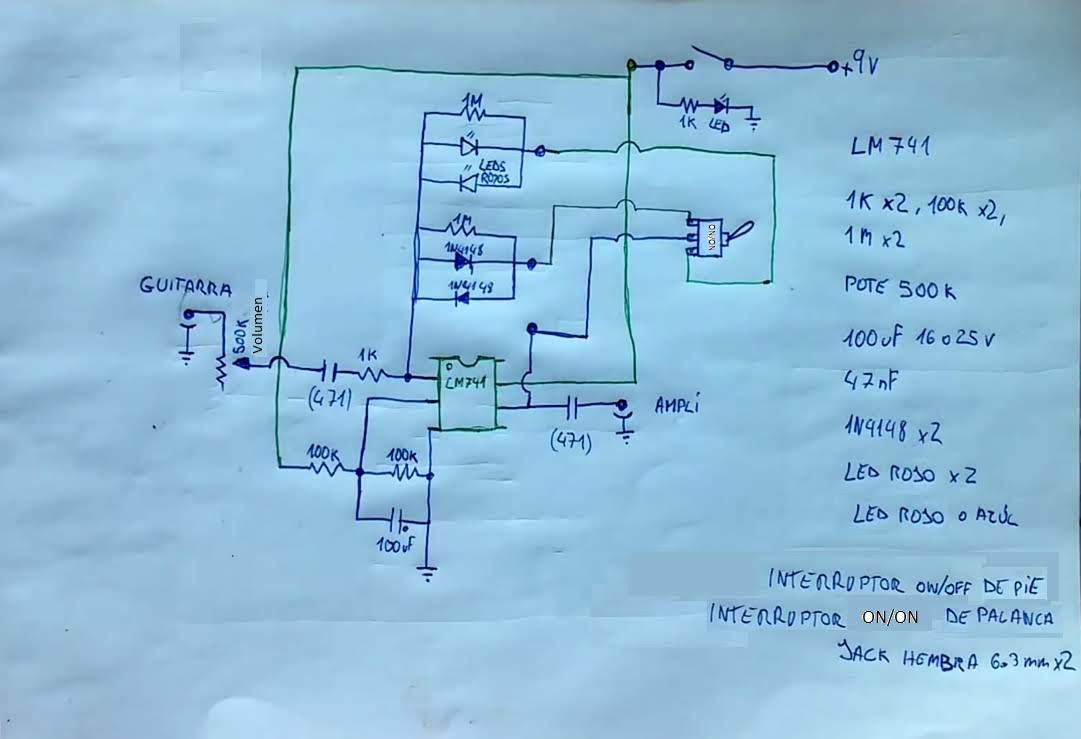 +9V
1K LED
1M
LEDS
ROJOS
1M
1N4148
1N4148
NO/NO
GUITARRA
500K
Volumen
1K
(471)
LM741
AMPLI
(471)
100K
100K
100uF
LM741
1K x2, 100K x2,
1M x2
POTE 500K
100uF 16 o 25V
47nF
1N4148 x2
LED ROJO x2
LED ROJO o AZÚL
INTERRUPTOR ON/OFF DE PIE
INTERRUPTOR ON/ON DE PALANCA
JACK HEMBRA 6.3mm x2